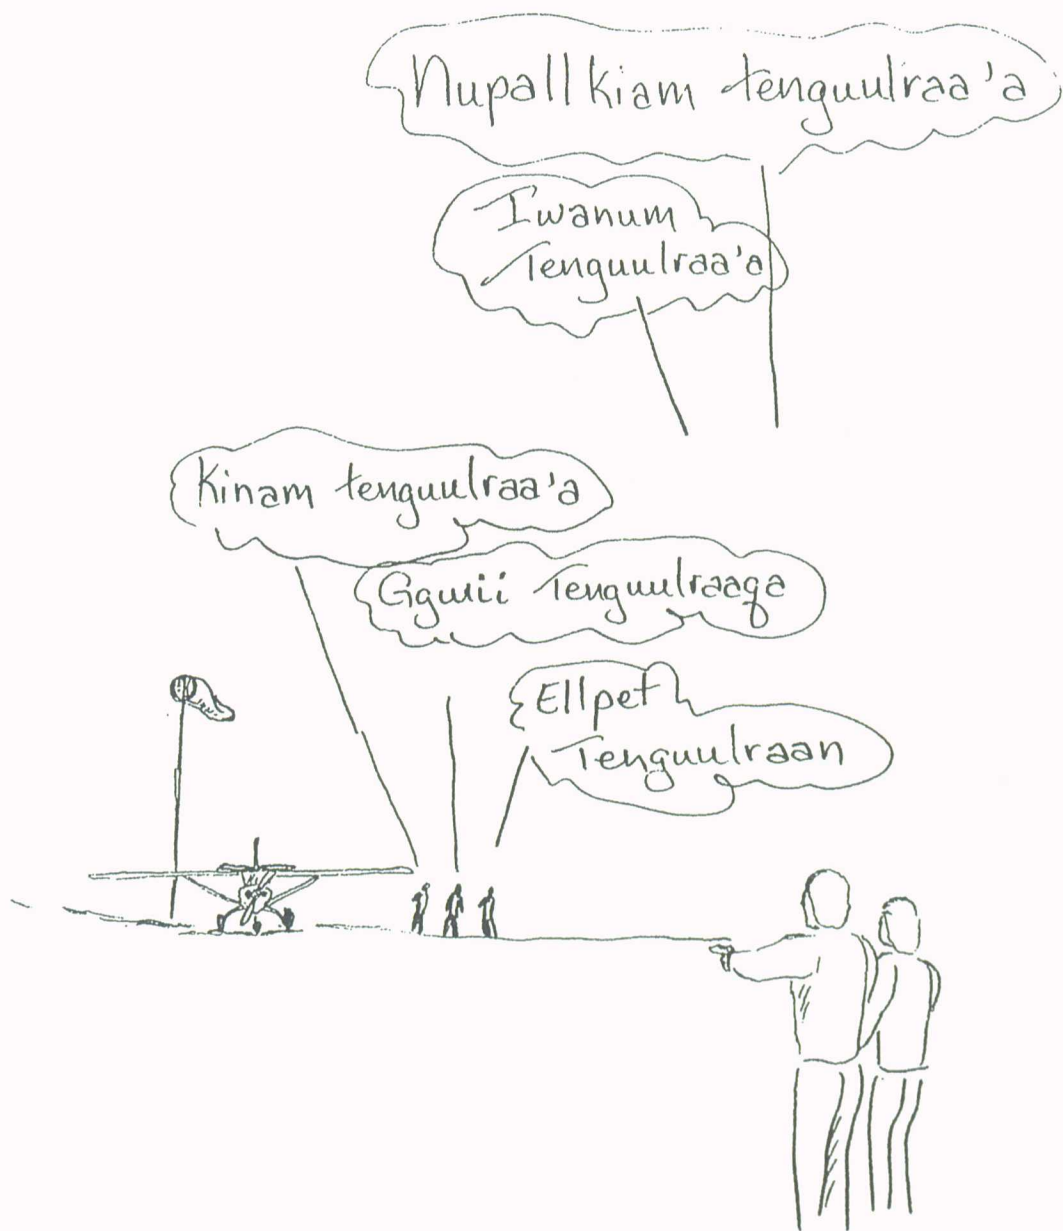 Nupallkiam tenguulraa'a
I'wanum
Tenguulraa'a
Kinam tenguulraa'a
Ggwii Tenguulraaqa
Ellpet
Tenguulraan